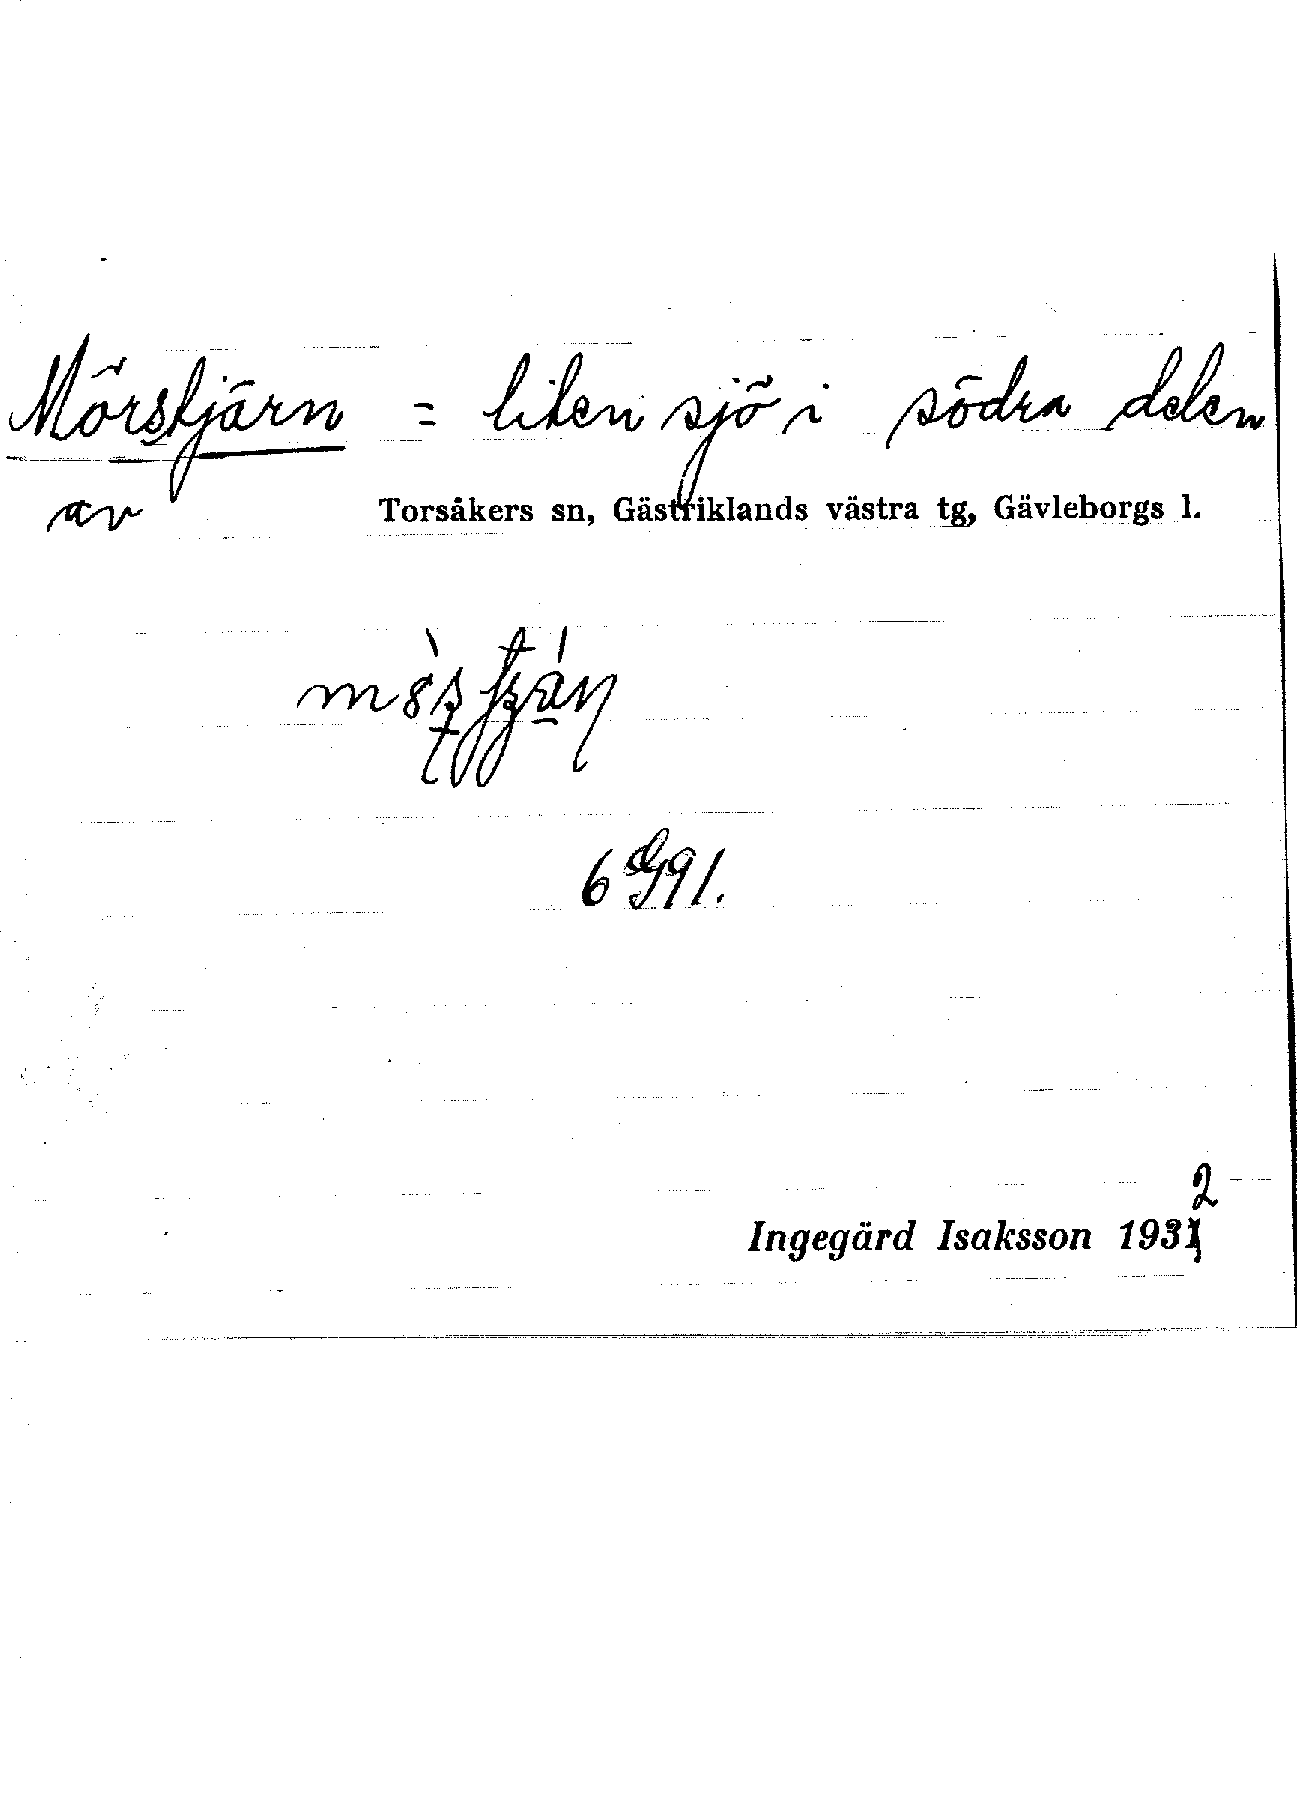 Mörstjärn = liten sjö i södra delen
av Torsåkers sn, Gästriklands västra tg, Gävleborgs l.
Ingegärd Isaksson 1932